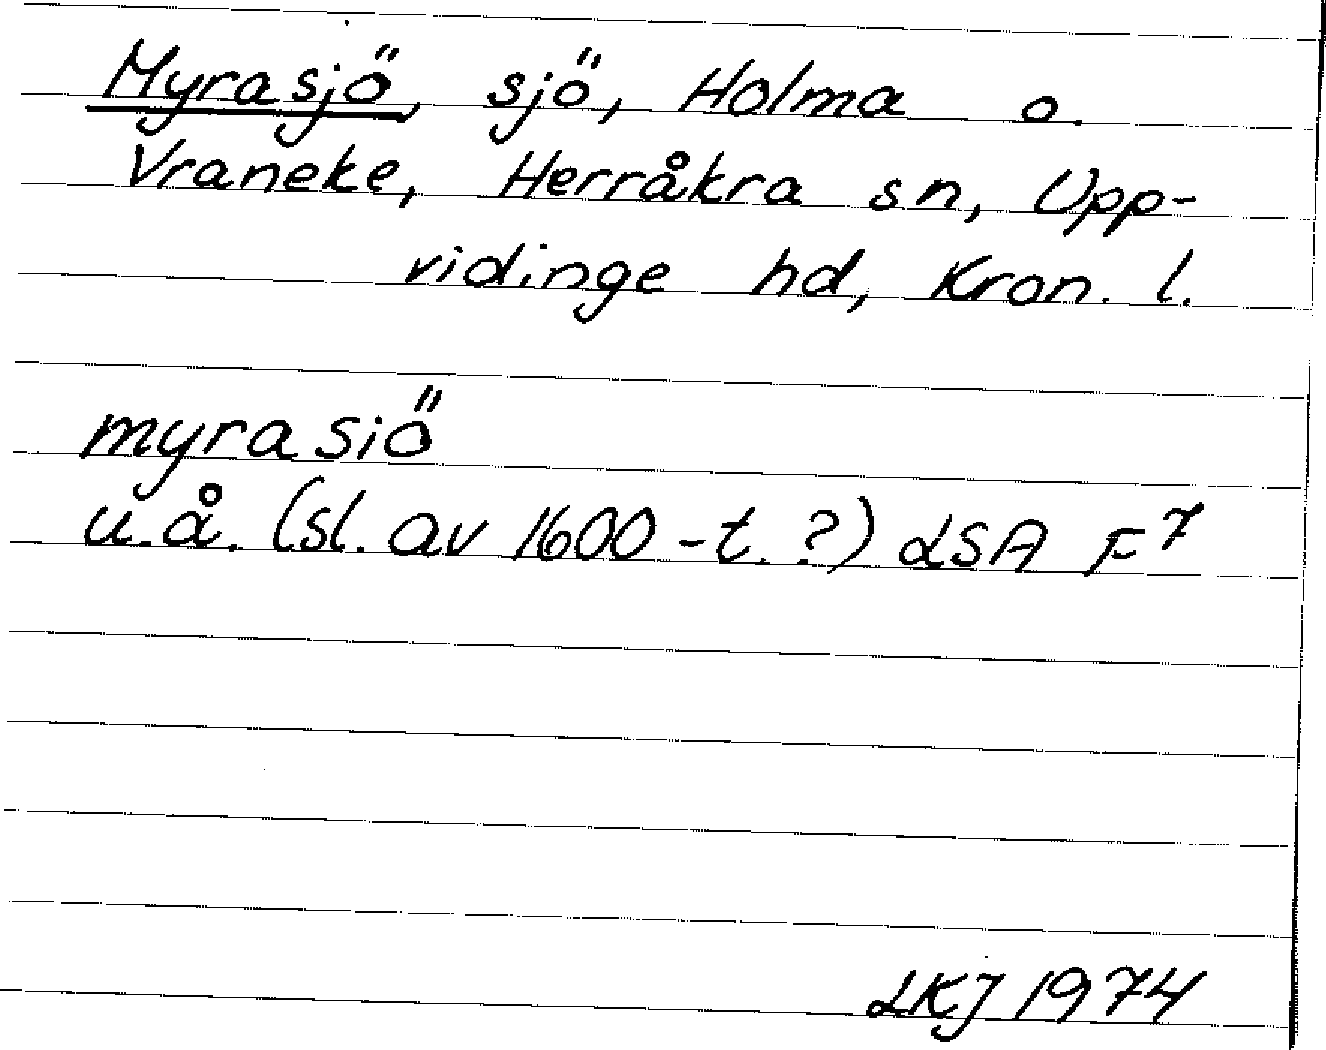 Myrasjö, sjö, Holma o.
Vraneke, Herråkra sn, Upp-
vidinge hd, Kron. l.
myrasiö
u.å. (sl. av 1600-t.?) LSA F7
LKJ 1974